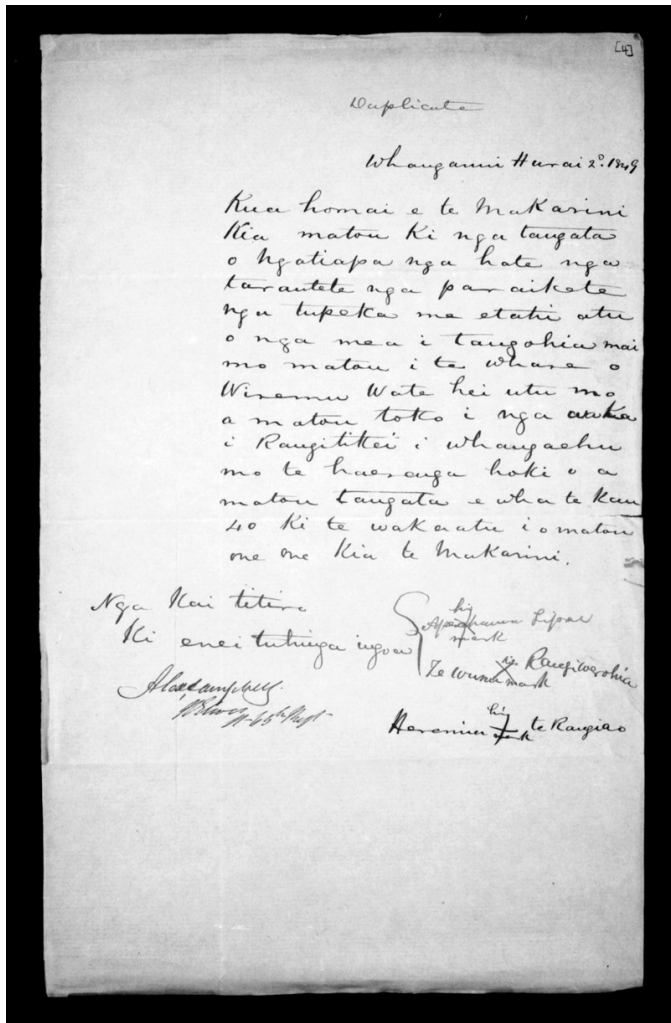 [4]
Duplicate
Whanganui Hurai 2º. 1849
Kua homai e te Makarini
Kia matou Ki nga tangata
o Ngatiapa nga hate nga
tarautete nga paraikete
nga tupeka me etahi atu
o nga mea i tangohia mai
mo matou i te whare o
Wiremu Wate hei utu mo
a matou toko i nga waka
i Rangitikei i Whangaehu
mo te haerenga hoki o a
matou tangata e wha te kau
40 Ki te wakaatu i o matou
one one Kia te Makarini.
Nga Kai titiro
Ki enei tuhinga ingoa
his
mark
Te Wunu X Rangiwerohia
mark
Alex Campbell
65th Regt
his
Heremia te Rangiao
mark